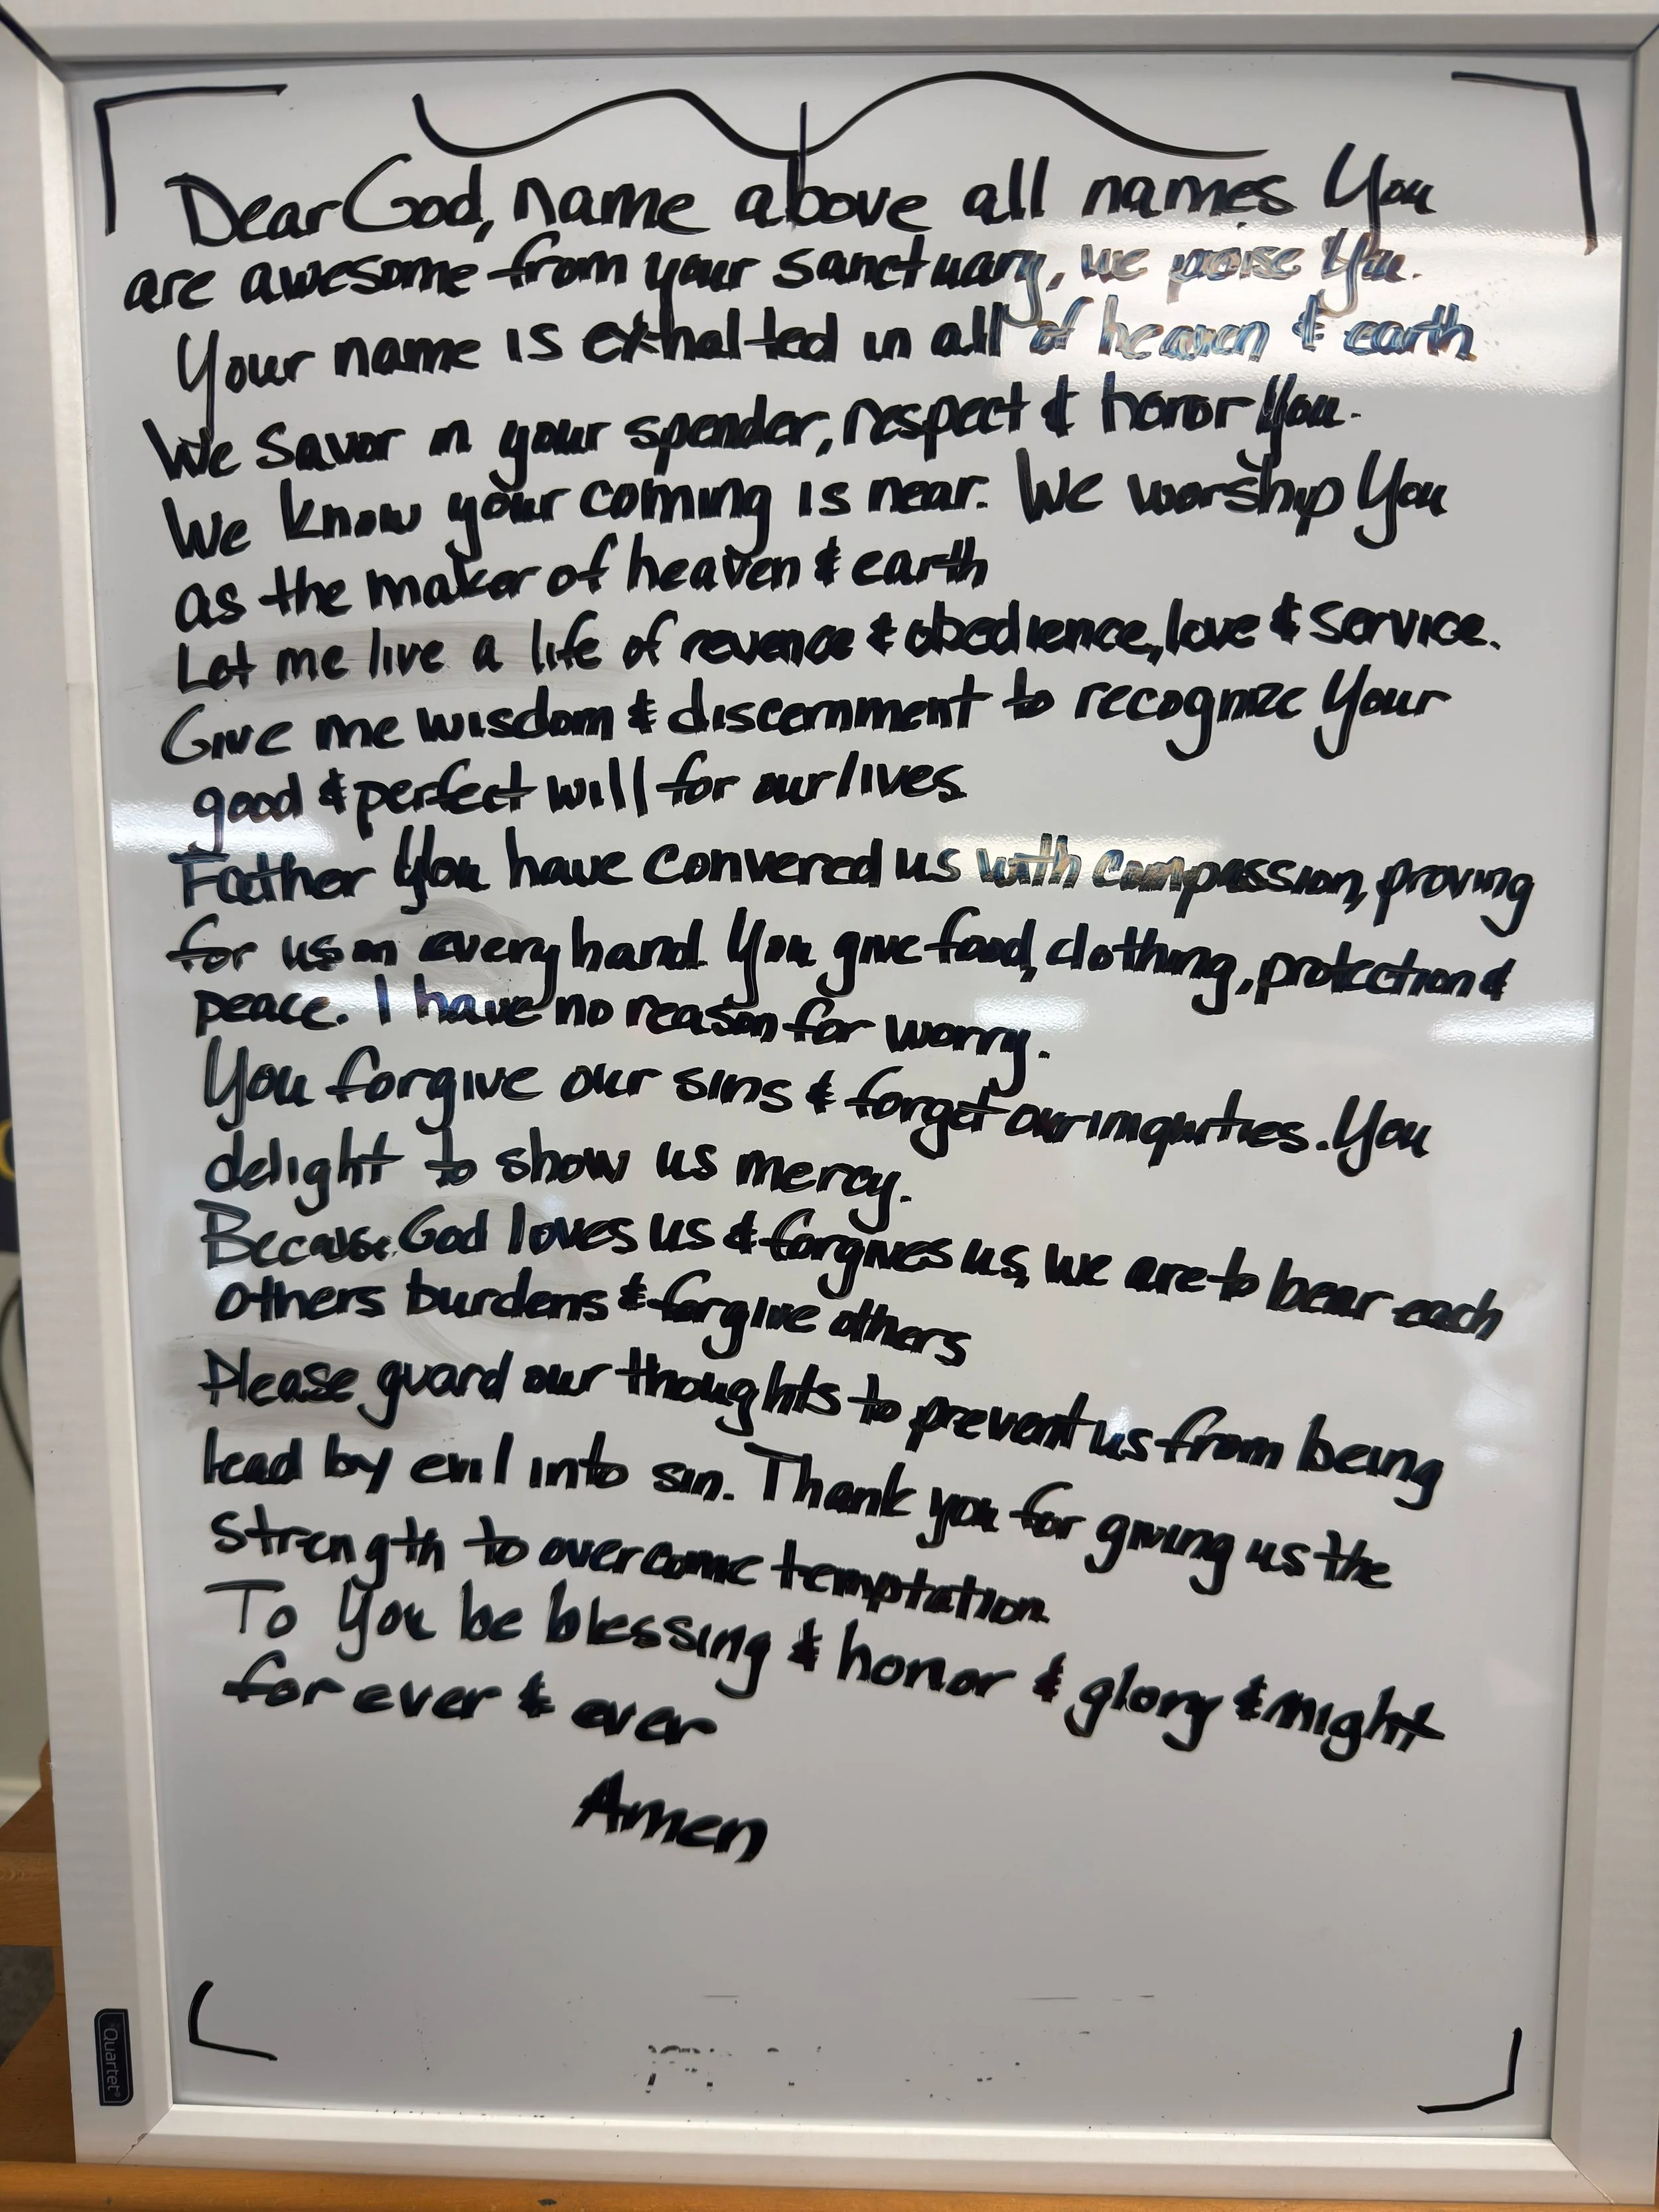 Dear God, name above all names You
are awesome from your sanctuary, we praise You.
Your name is exhalted in all of heaven & earth
We savor in your spender, respect & honor You.
We know your coming is near. We worship You
as the maker of heaven & earth
Let me live a life of revence & obedience, love & service.
Give me wisdom & discernment to recognize Your
good & perfect will for our lives
Father You have convered us with compassion, proving
for us on every hand. You give food, clothing, protection &
peace. I have no reason for worry.
You forgive our sins & forget our iniquities. You
delight to show us mercy.
Because God loves us & forgives us, we are to bear each
others burdens & forgive others
Please guard our thoughts to prevent us from being
lead by evil into sin. Thank you for giving us the
strength to overcome temptation.
To You be blessing & honor & glory & might
for ever & ever
Amen
Quartet